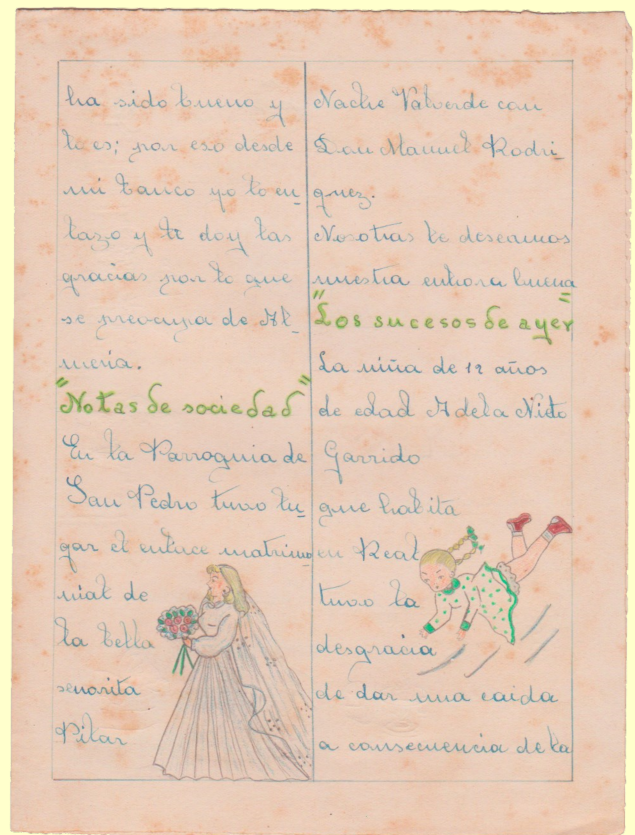 ha sido bueno y
lo es; por eso desde
mi banco yo lo en-
lazo y le doy las
gracias por lo que
se preocupa de Al-
mería.
"Notas de sociedad"
En la Parroquia de
San Pedro tuvo lu-
gar el enlace matrimo
nial de
la bella
senorita
Pilar
Nache Valverde con
Don Manuel Rodri-
quez.
Nosotras le deseamos
nuestra enhora buena
"Los sucesos de ayer"
La niña de 12 años
de edad Adela Nieto
Garrido
que habita
en Real
tuvo la
desgracia
de dar una caida
a consecuencia de la